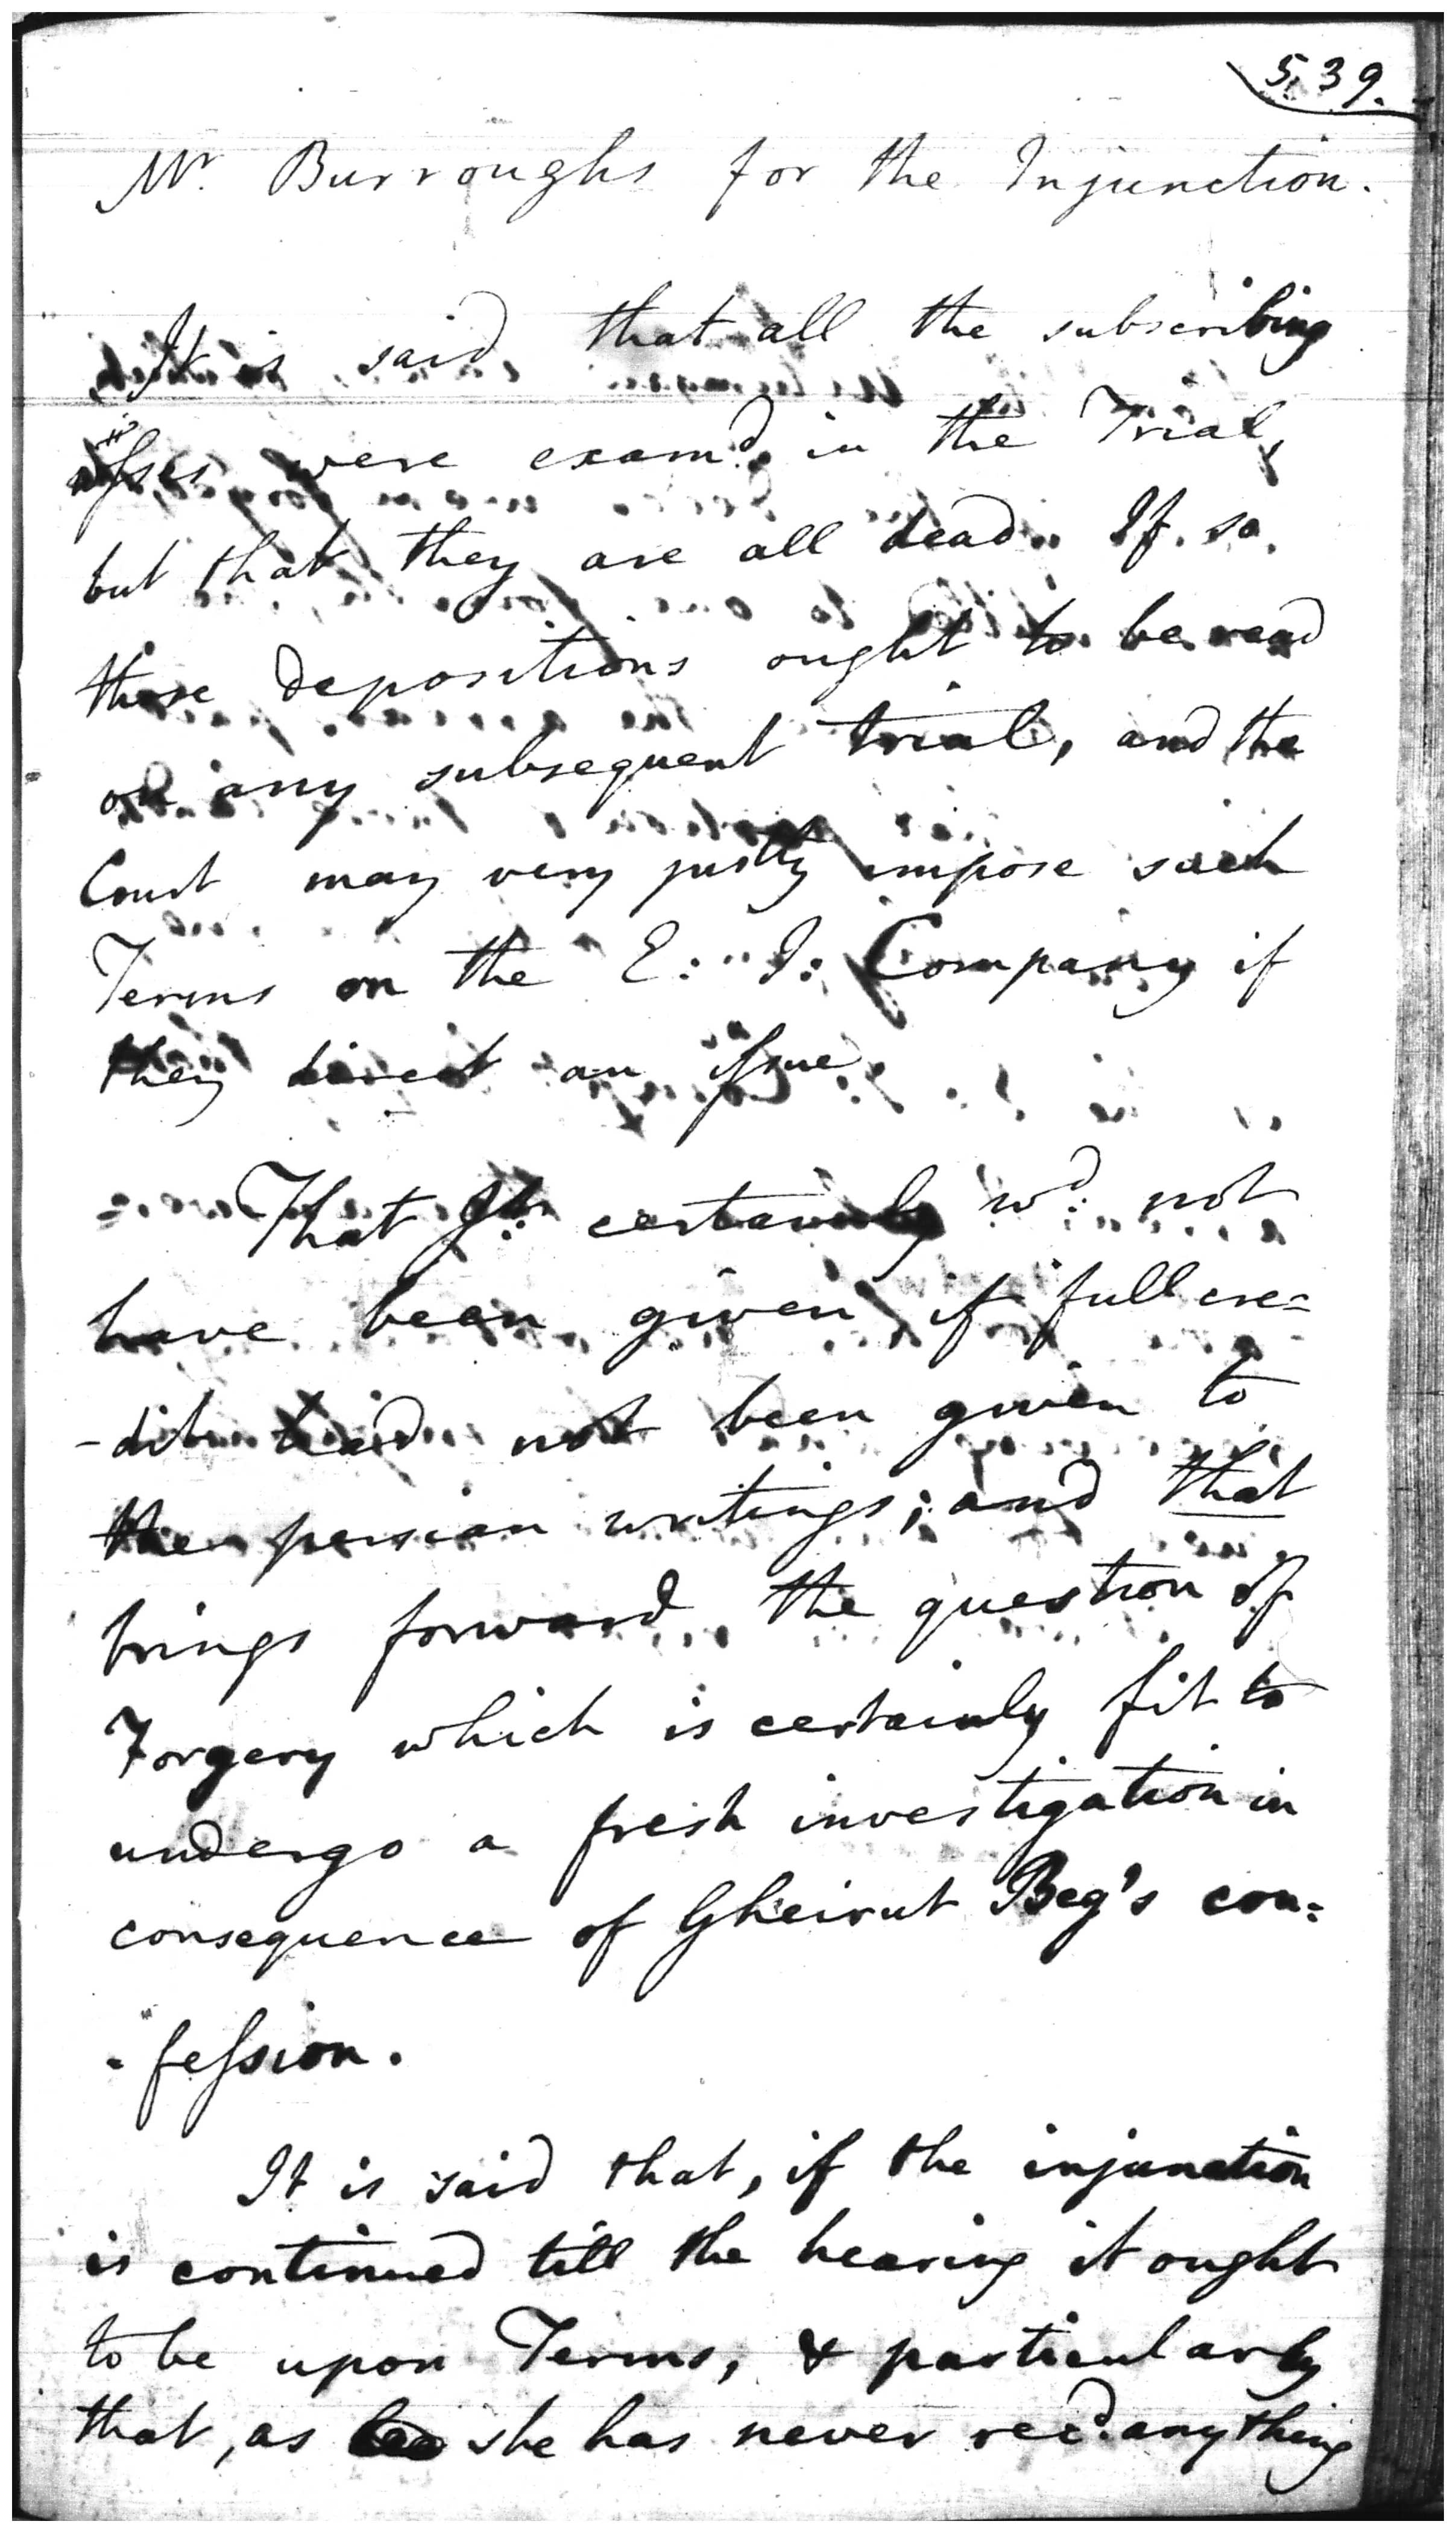 539.
Mr. Burroughs for the Injunction.
It is said that all the subscribing
wittsses were examd. in the Trial,
but that they are all dead. If so.
those depositions ought to be read
on any subsequent trial, and the
Court may very justly impose such
Terms on the E: I: Company if
they direct an issue.
That Jt. certainly wd. not
have been given, if full cre=
-dit had not been given to
the persian writings; and that
brings forward the question of
Forgery which is certainly fit to
undergo a fresh investigation in
consequence of Gheirut Beg's con=
-fession.
It is said that, if the injunction
is continued till the hearing it ought
to be upon Terms, & particularly
that, as she has never recd. any thing